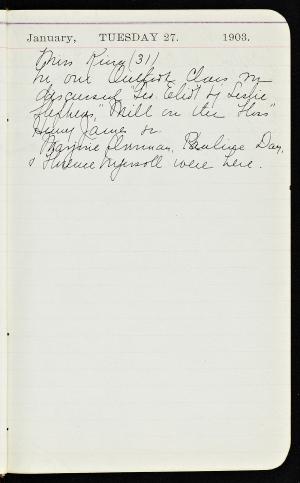 January, TUESDAY 27. 1903.
Miss King (31)
In our Outlook Class in
discussed "Geo. Eliot by Leslie
Stephens," "Mill on the Floss"
Henry James
Marjorie Pauline Day,
& Florence Ingersoll were here.